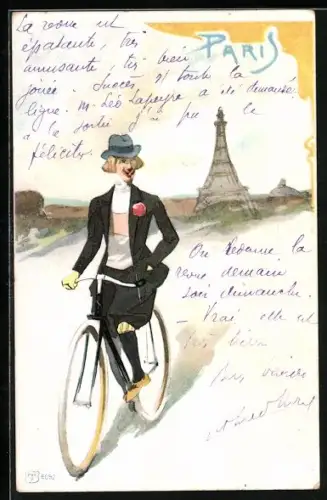 La revue est
épatante, très
amusante, très bien
jouée. Succès sur toute la
ligne. M. Léo Lapeyre a été demandé
à la sortie j'ai pu le
féliciter.
PARIS
On redonne la
revue demain
soir dimanche.
— Vrai elle est
très bien
Bons baisers